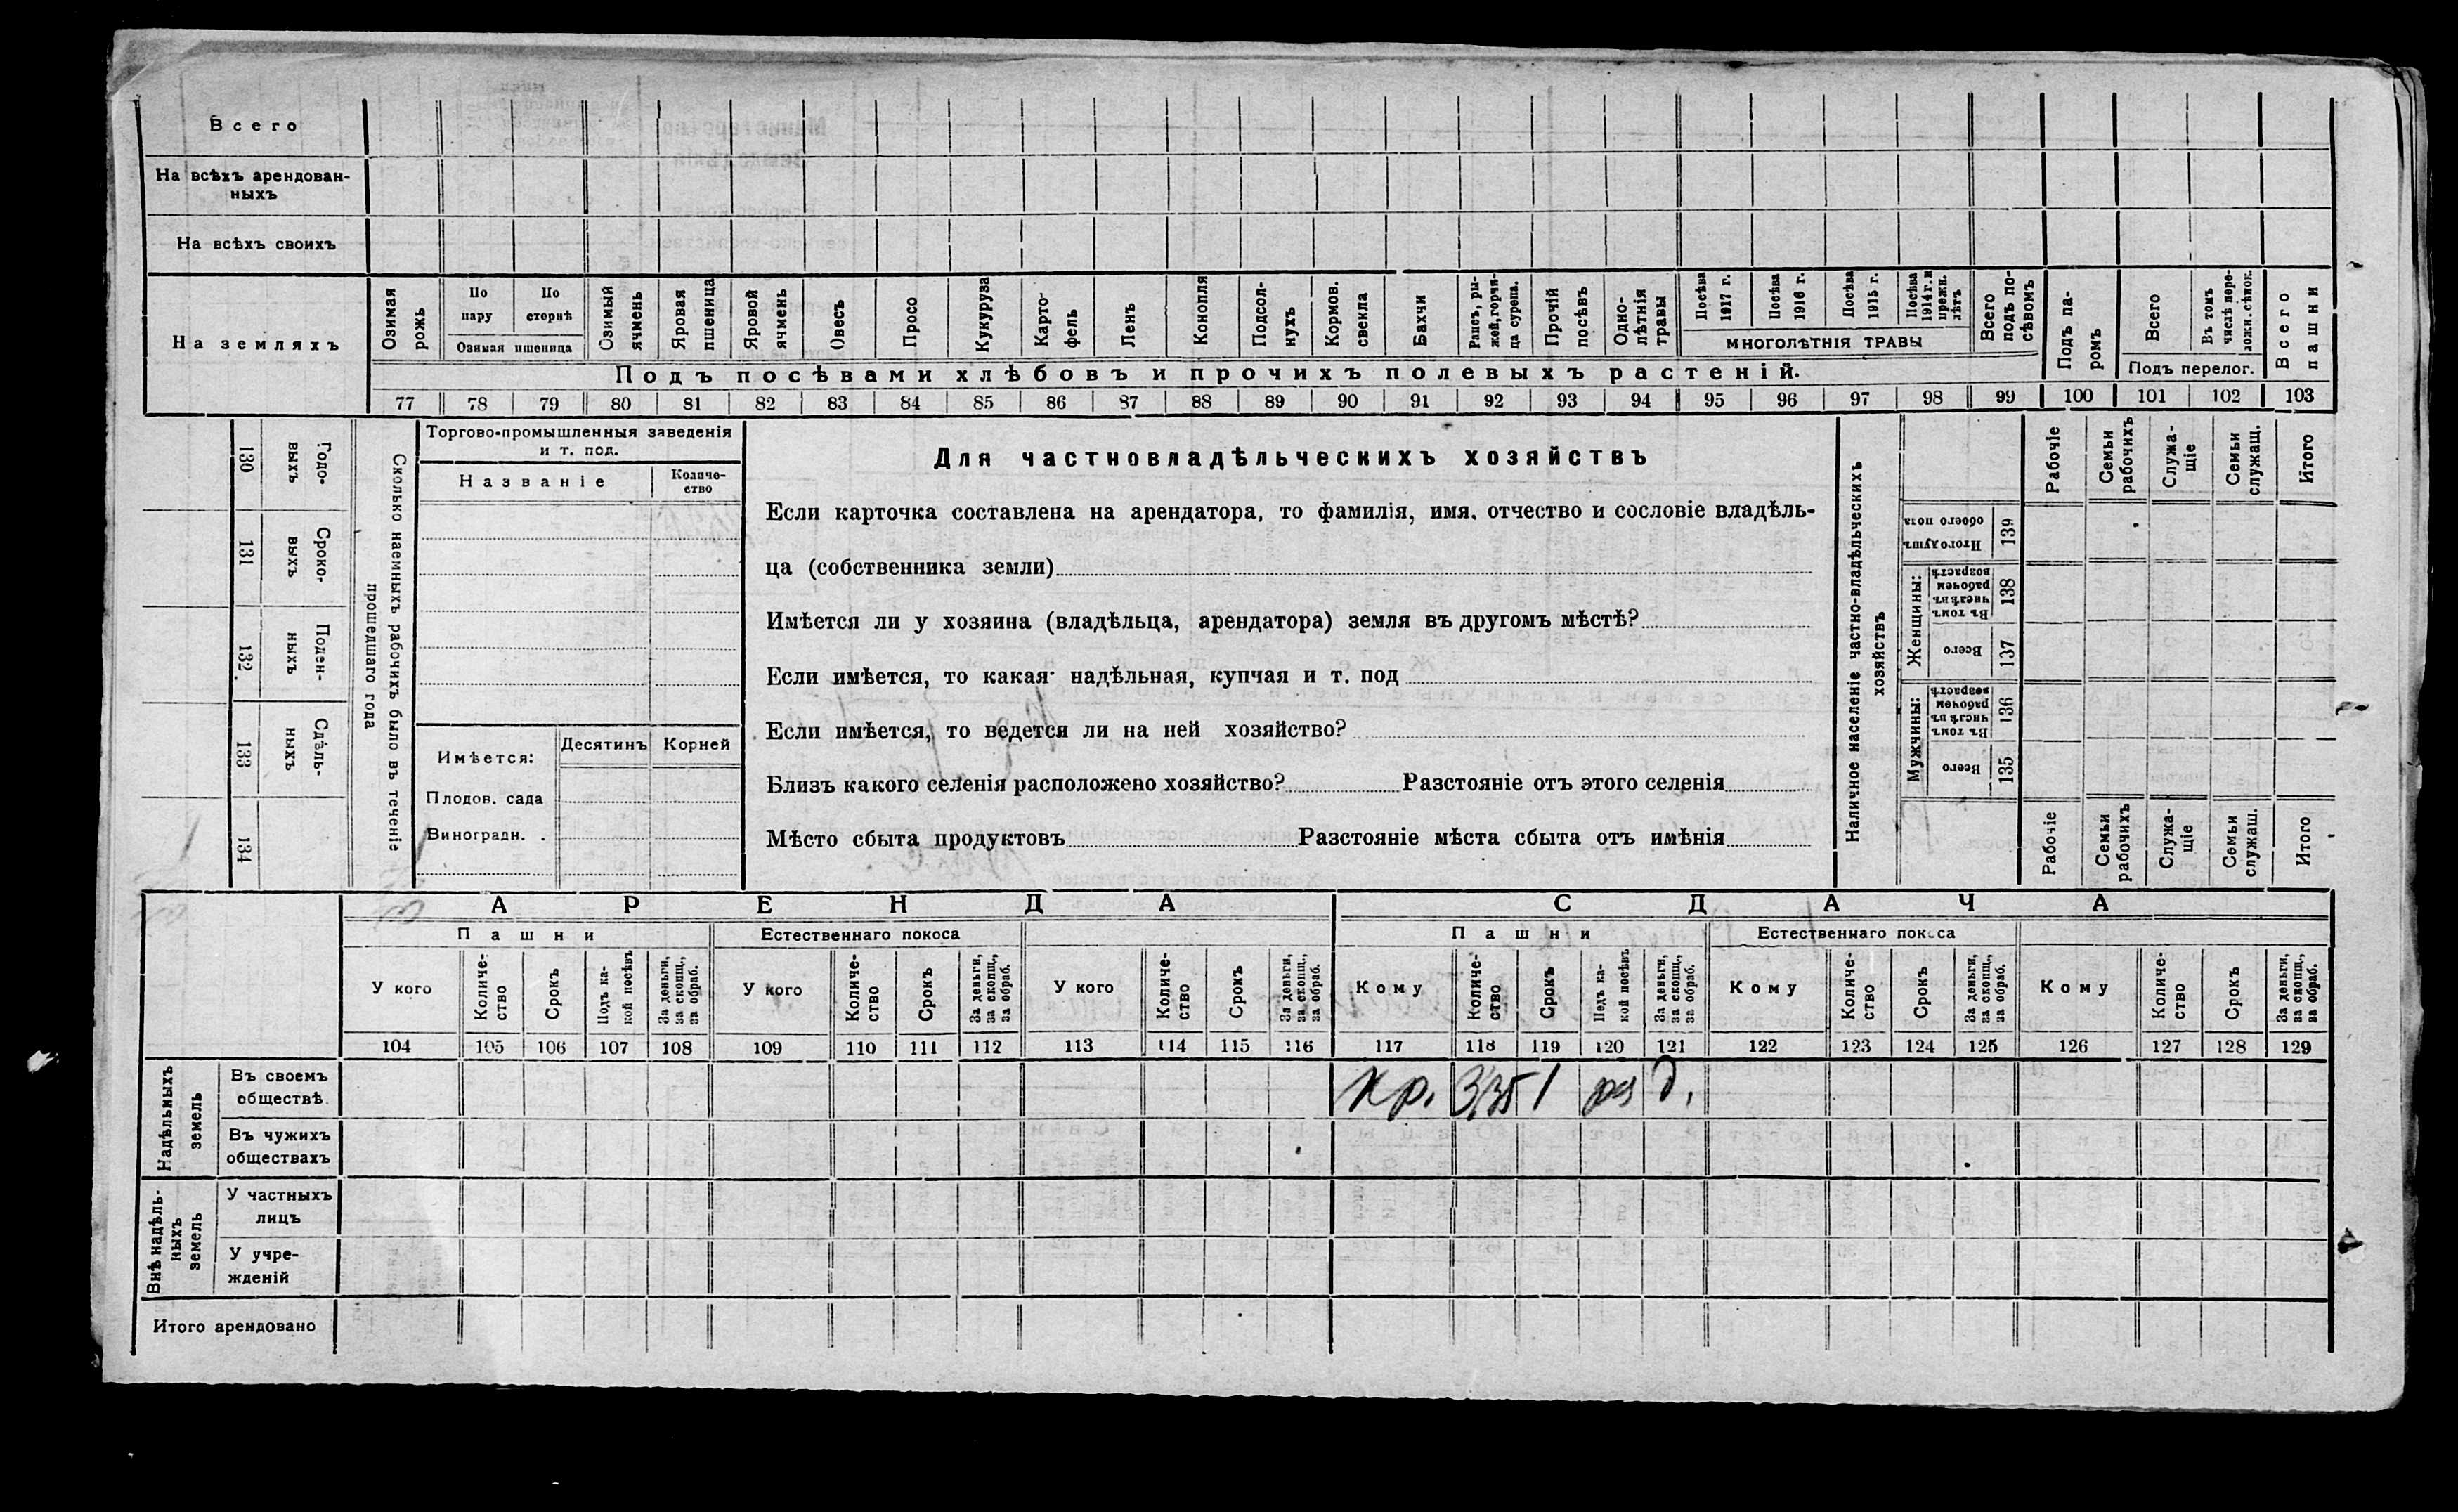 Всего
На всѣхъ арендован-
ныхъ
На всѣхъ своихъ
На земляхъ
Озимая рожь
По пару
По стернѣ
Озимая пшеница
Озимый ячмень
Яровая пшеница
Яровой ячмень
Овесъ
Просо
Кукуруза
Карто-
фель
Ленъ
Конопля
Подсол-
нухъ
Кормов. свекла
Бахчи
Рапсъ, ры-
жей, горчи-
ца сурепа.
Прочій посѣвъ
Одно-
лѣтнія травы
Посѣва 1917 г.
Посѣва 1916 г.
Посѣва 1915 г.
Посѣва 1914 г. и прежн. лѣтъ
МНОГОЛѢТНІЯ ТРАВЫ
Всего подъ по-
сѣвомъ
Подъ па-
ромъ
Всего
Въ томъ числѣ пере-
ложн. сѣнок.
Подъ перелог.
Всего пашни
Подъ посѣвами хлѣбовъ и прочихъ полевыхъ растеній.
77 78 79 80 81 82 83 84 85 86 87 88 89 90 91 92 93 94 95 96 97 98 99 100 101 102 103
130 Годо-
выхъ
131 Сроко-
выхъ
132 Поден-
ныхъ
133 Сдѣль-
ныхъ
134
Сколько наемныхъ рабочихъ было въ теченіе
прошедшаго года
Торгово-промышленныя заведенія
и т. под.
Названіе
Количе-
ство
Имѣется:
Десятинъ Корней
Плодов. сада
Виноградн. .
Для частновладѣльческихъ хозяйствъ
Если карточка составлена на арендатора, то фамилія, имя, отчество и сословіе владѣль-
ца (собственника земли)
Имѣется ли у хозяина (владѣльца, арендатора) земля въ другомъ мѣстѣ?
Если имѣется, то какая: надѣльная, купчая и т. под
Если имѣется, то ведется ли на ней хозяйство?
Близъ какого селенія расположено хозяйство? Разстояніе отъ этого селенія
Мѣсто сбыта продуктовъ Разстояніе мѣста сбыта отъ имѣнія
Наличное населеніе частно-владѣльческихъ
хозяйствъ
Рабочіе
Семьи рабочихъ
Служа-
щіе
Семьи служащ.
Итого
Итого душъ обоего пола 139
Женщины:
Въ томъ числѣ въ рабочемъ возрастѣ 138
Всего 137
Мужчины:
Въ томъ числѣ въ рабочемъ возрастѣ 136
Всего 135
Рабочіе
Семьи рабочихъ
Служа-
щіе
Семьи служащ.
Итого
АРЕНДА СДАЧА
Пашни Естественнаго покоса Пашни Естественнаго покоса
У кого
Количе-
ство
Срокъ
Подъ ка-
кой посѣвъ
За деньги, за скопщ., за обраб.
У кого
Количе-
ство
Срокъ
За деньги, за скопщ., за обраб.
У кого
Количе-
ство
Срокъ
За деньги, за скопщ., за обраб.
Кому
Количе-
ство
Срокъ
Подъ ка-
кой посѣвъ
За деньги, за скопщ., за обраб.
Кому
Количе-
ство
Срокъ
За деньги, за скопщ., за обраб.
Кому
Количе-
ство
Срокъ
За деньги, за скопщ., за обраб.
104 105 106 107 108 109 110 111 112 113 114 115 116 117 118 119 120 121 122 123 124 125 126 127 128 129
Надѣльныхъ
земель
Въ своемъ
обществѣ
кр. 3,35 1 д.
Въ чужихъ
обществахъ
Внѣ надѣль-
ныхъ
земель
У частныхъ
лицъ
У учре-
жденій
Итого арендовано